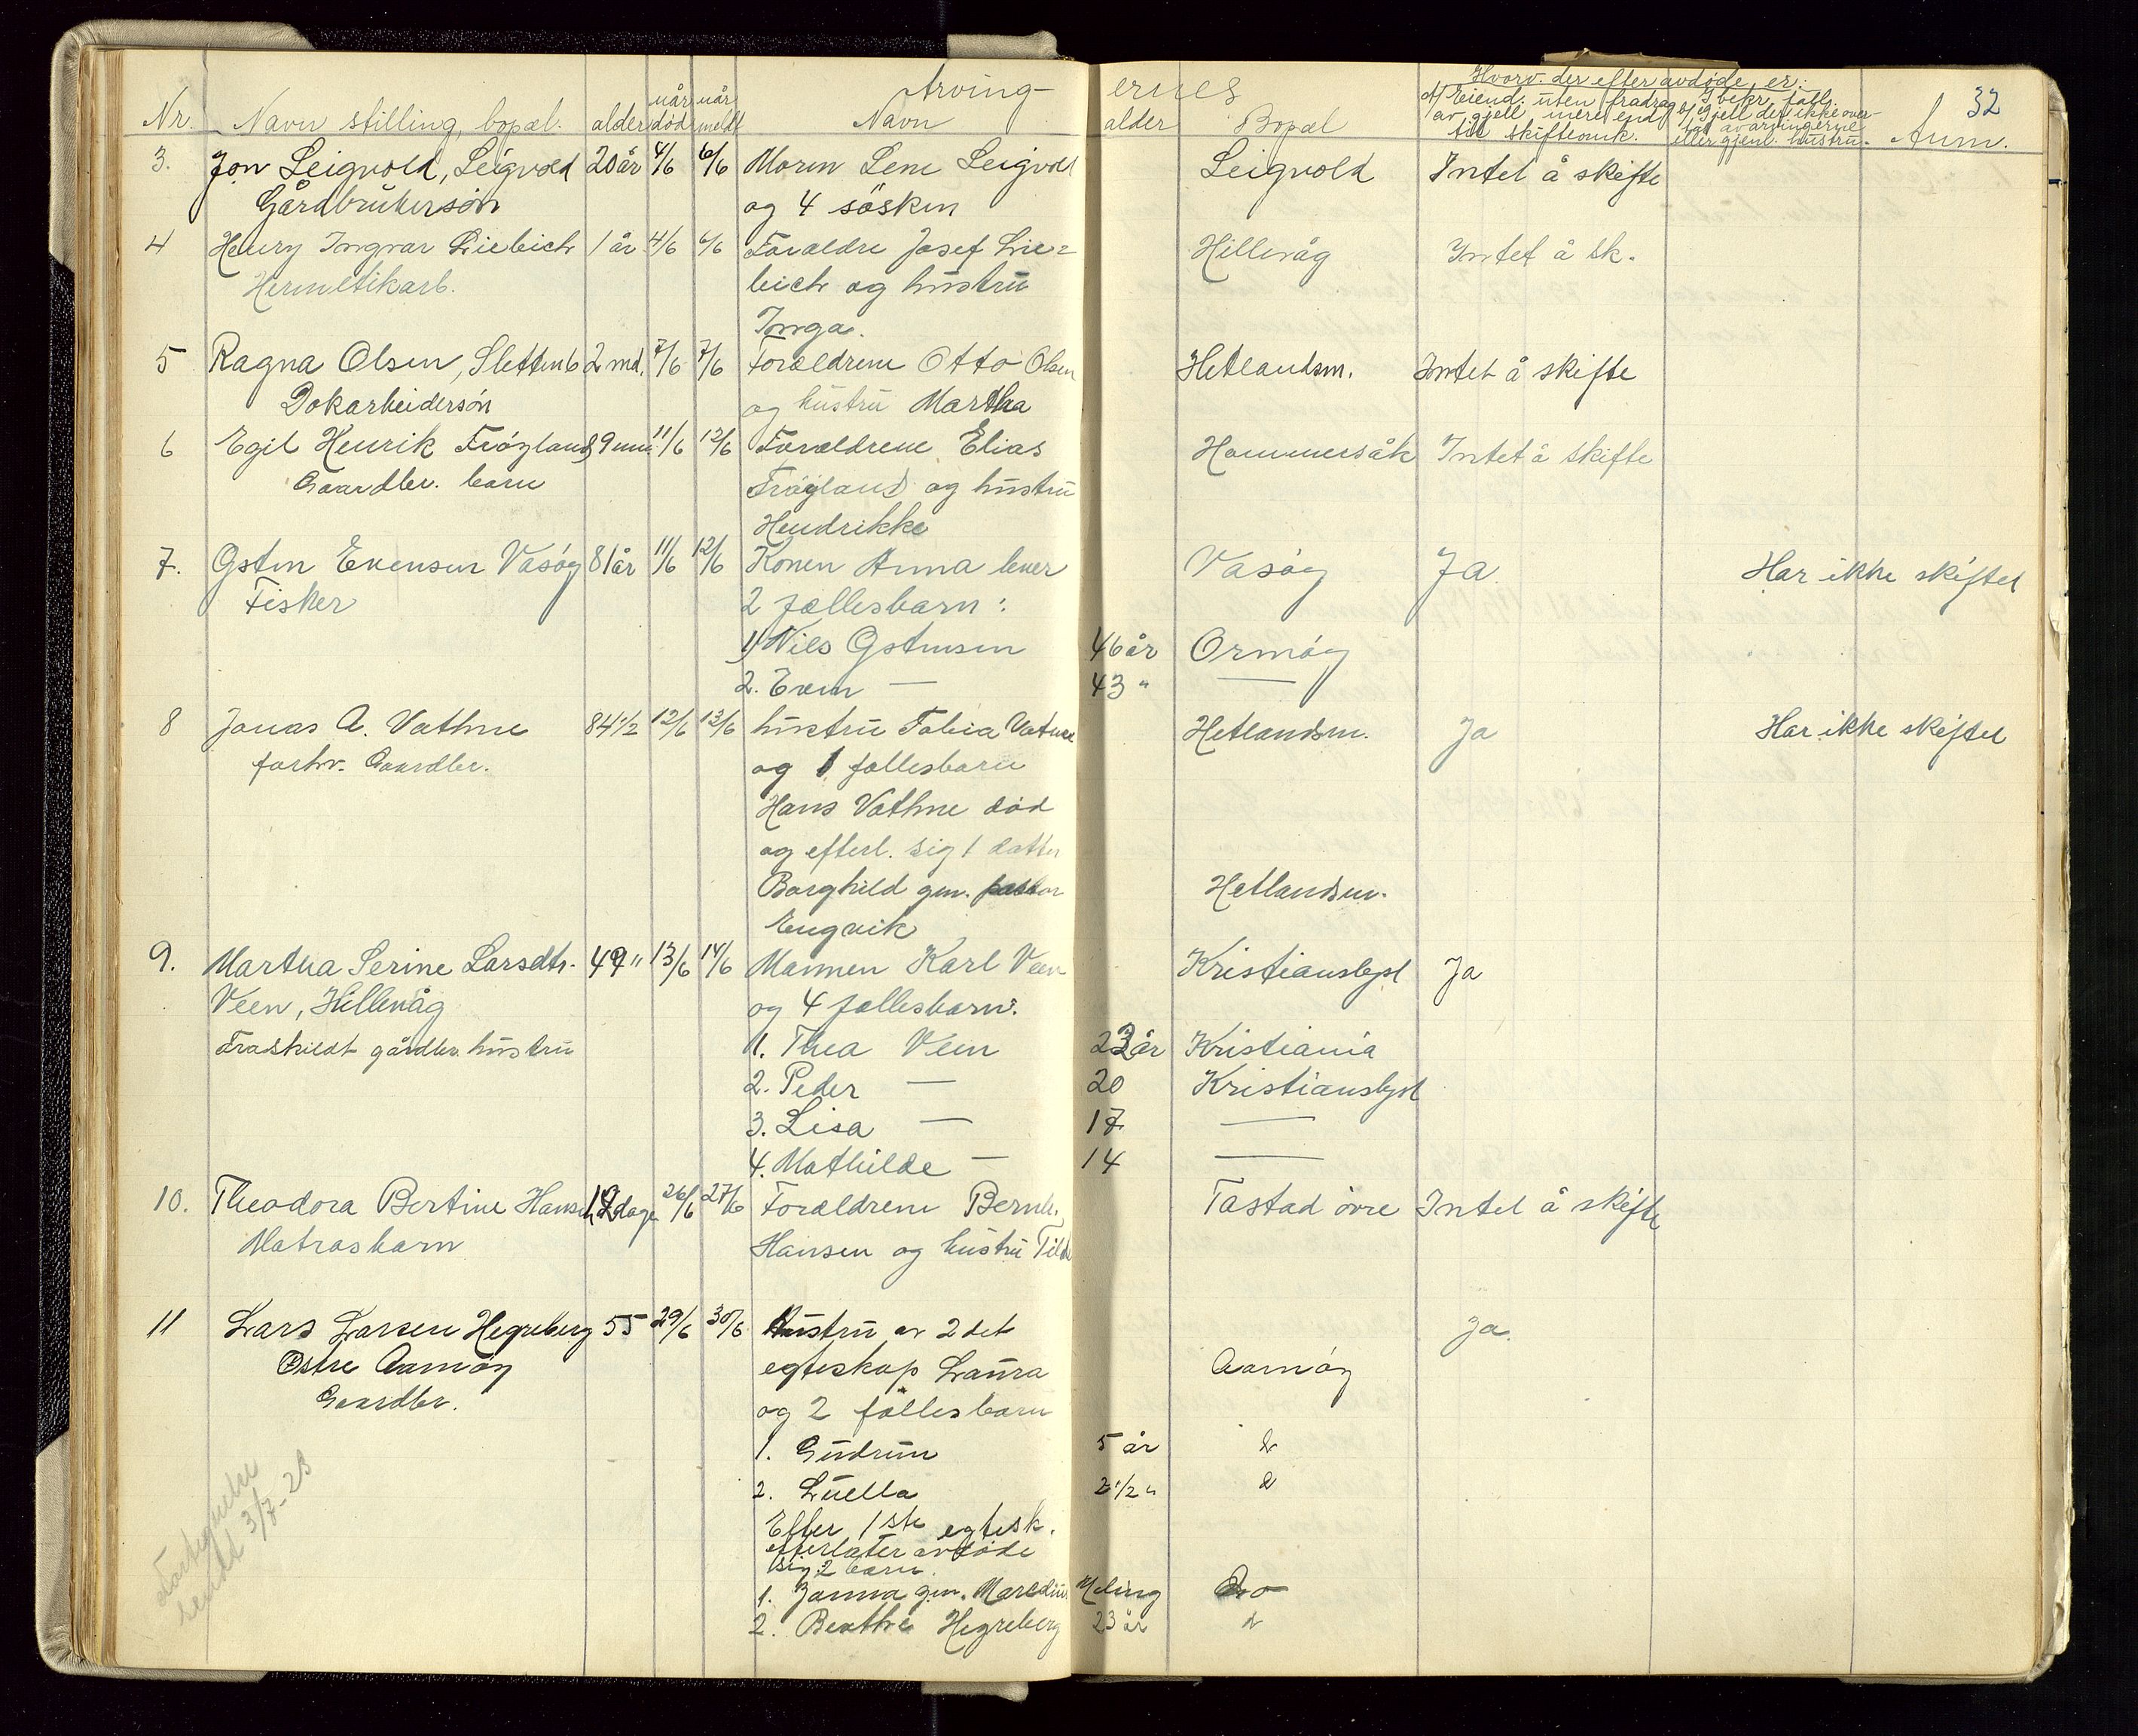 32
Arvingernes
Hvorv. der efter avdøde er:
Nr. Navn stilling, bopæl. alder når død når meldt Navn alder Bopæl
A) Eiend. uten fradrag av gjell mere end til skifteomk.
Anm.
3. Jon Leigvold, Leigvold 20 år 4/6 6/6 Maren Lene Leigvold Leigvold Intet å skifte
Gårdbrukersøn og 4 søsken
4 Henry Ingvar Liebich 1 år 4/6 6/6 Foraldre Josef Lie= Hillevåg Intet å sk.
Hermetikarb. bich og hustru
Inga.
5 Ragna Olsen, Slettenb 2 md. 7/6 7/6 Forældrene Otto Olsen Hetlandsm. Intet å skifte
Dokarbeidersøn og hustru Martha
6 Egil Henrik Frøyland 9 mn. 11/6 12/6 Forældrene Elias Hommersåk Intet å skifte
Gaardbr. barn Frøyland og hustru
Hendrikke
7. Østen Evensen Vasøy 81 år 11/6 12/6 Konen Anna lever Vasøy Ja Har ikke skiftet
Fisker 2 fællesbarn:
1) Nils Østensen 46 år Ormøy
2. Even — 43 " —
8 Jonas A. Vathne 84 1/2 12/6 13/6 hustru Tabia Vatne Hetlandsm. Ja Har ikke skiftet
forhv. Gaardbr. og 1 fallesbarn
Hans Vathne død
og efterl. sig 1 datter
Borghild gm. pastor Hetlandsm.
Engvik
9. Martha Serine Larsdtr. 49 " 13/6 14/6 Mannen Karl Veen Kristianslyst Ja
Veen, Hillevåg og 4 fallesbarn:
Fraskildt gårdbr. hustru 1. Thea Veen 23 år Kristiania
2. Peder — 20 Kristianslyst
3. Lisa — 17 —
4. Mathilde — 14 —
10. Theodora Bertine Hansen dage 26/6 27/6 Forældrene Bernh. Tastad øvre Intet å skifte
Matrosbarn Hansen og hustru Tilda
11 Lars Larsen Hegreberg 55 29/6 30/6 Hustru av 2det Ja.
Østre Aamøy egteskap Laura Aamøy
Gaardbr. og 2 fälles barn
1. Gudrun 5 år
2. Luella 2 1/2 "
Efter 1ste egtesk.
efterlater avdøde
sig 2 barn.
1. Janna gm. Maredius Meling Do
2. Berthe Hegreberg 23 år
sendt 3/7-23